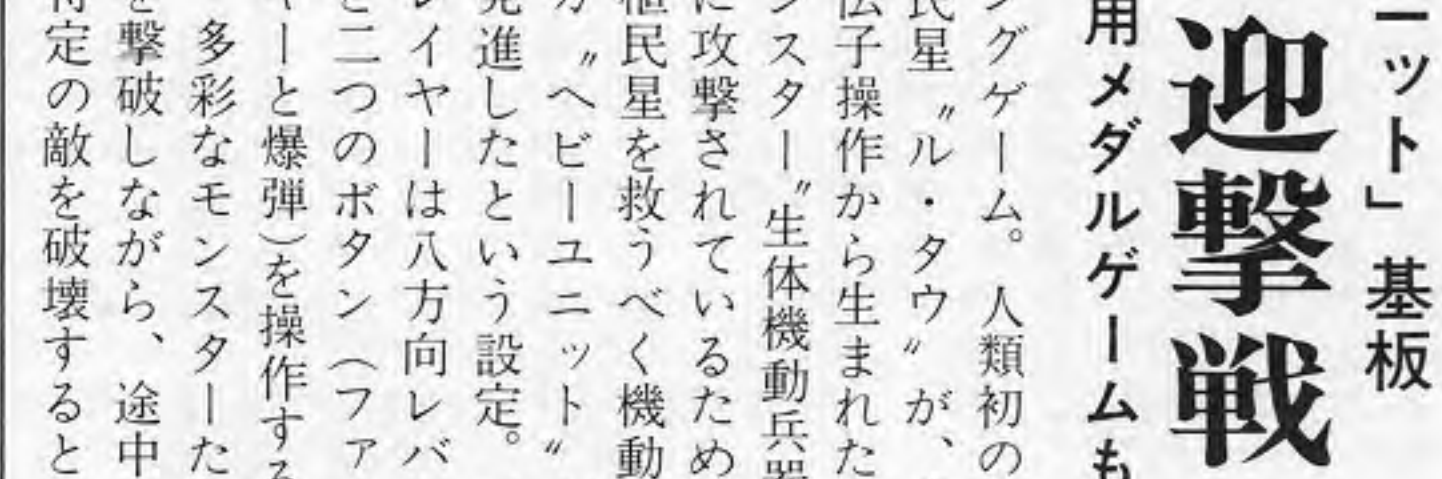 ーット」基板
迎撃戦
用メダルゲームも
ングゲーム。人類初の
民星〝ル・タウ〟が、
伝子操作から生まれた
ンスター〟生体機動兵器
に攻撃されているため
植民星を救うべく機動
〝ヘビーユニット〟
発進したという設定。
レイヤーは八方向レバ
と二つのボタン（ファ
ーと爆弾）を操作する
多彩なモンスターた
を撃破しながら、途中
特定の敵を破壊すると